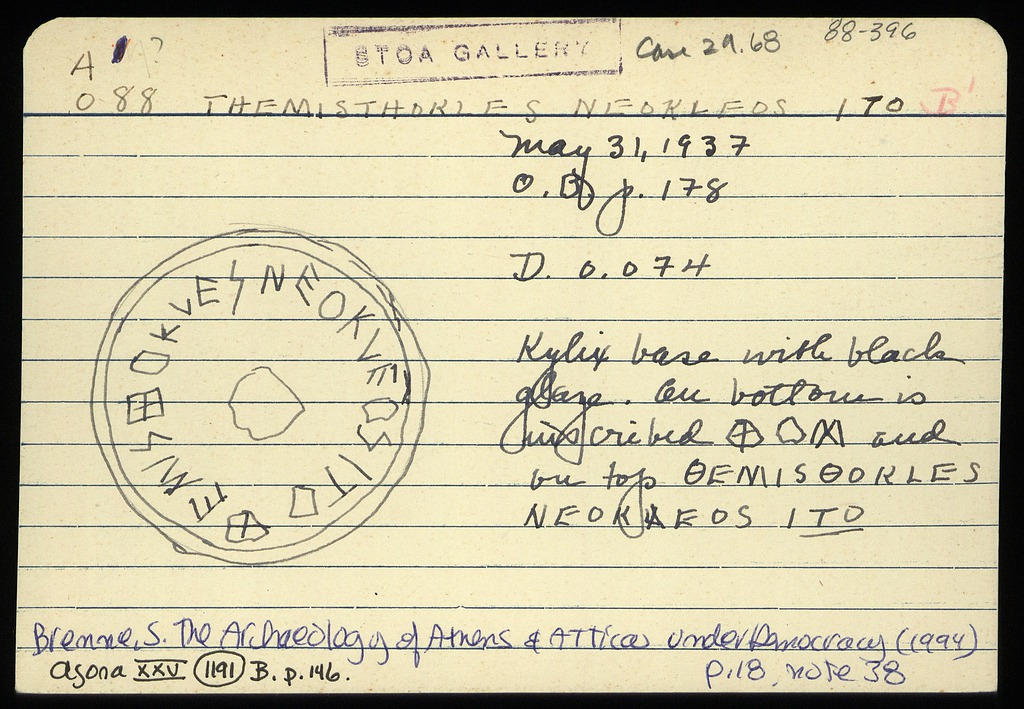 A ?
STOA GALLERY
Case 29.68
88-396
O 88 THEMISTHOKLES NEOKLEOS ITO B'
May 31, 1937
O.B. p. 178
D. 0.074
Kylix base with black
glaze. On bottom is
inscribed and
on top ΘEMISΘOKLES
NEOKLEOS ITO
Brenne, S. The Archaeology of Athens & Attica under Democracy (1994)
p.18, note 38
Agora XXV 1191 B. p. 146.